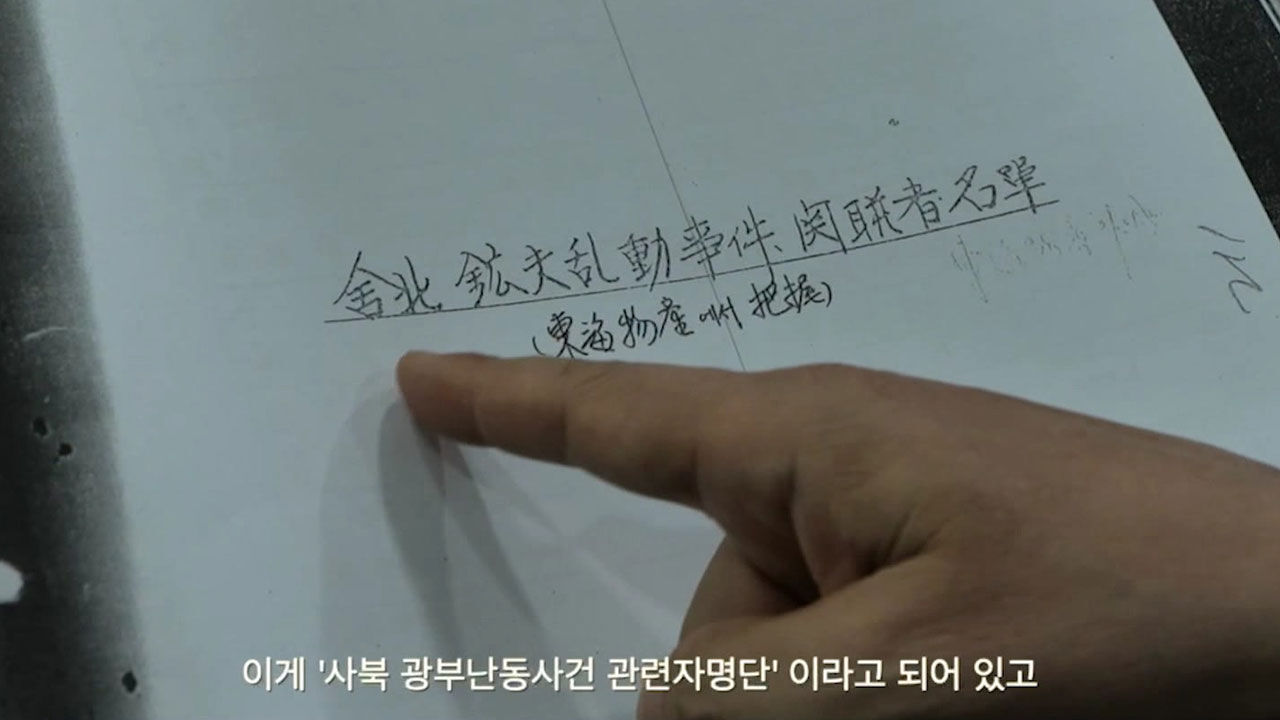 舍北 鉱夫乱動事件 関聯者名單
(東海物産에서 把握)
이게 '사북 광부난동사건 관련자명단' 이라고 되어 있고